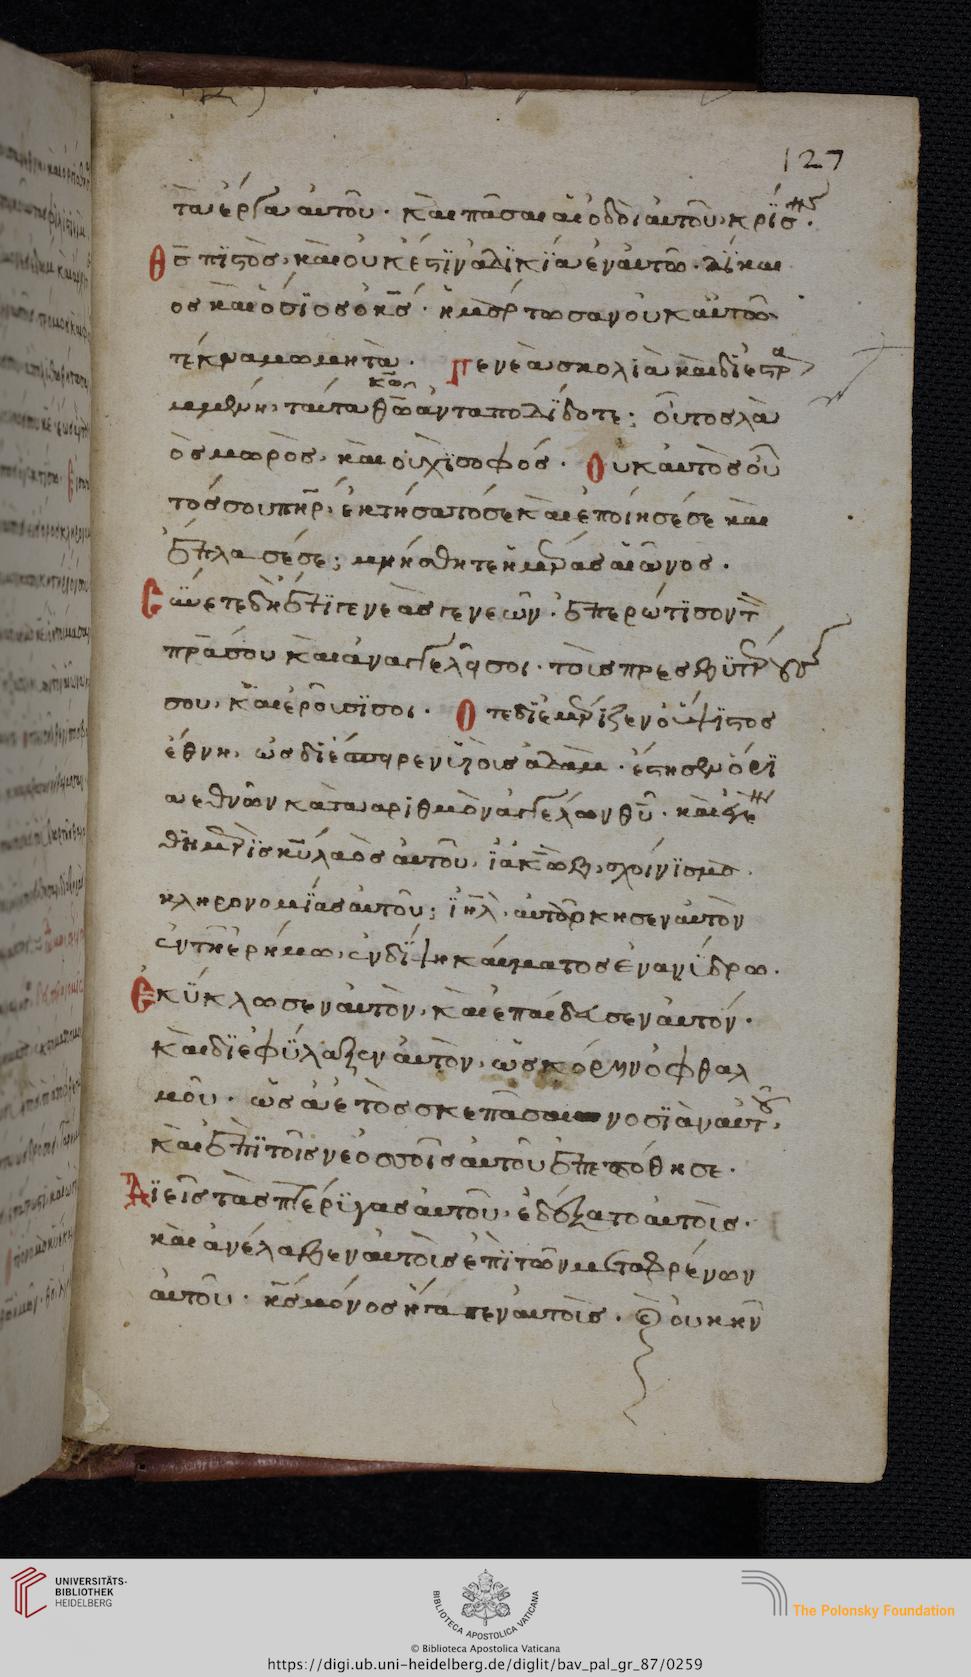 127
τὰ ἔργα αὐτοῦ· καὶ πᾶσαι αἱ ὁδοὶ αὐτοῦ κρίσης·
Θς πιστὸς, καὶ οὐκ ἔστιν ἀδικία ἐν αὐτῶ· δίκαι
ος καὶ ὅσιος ὁ κς· ἡμάρτωσαν οὐκ αὐτῶ
τέκνα μωμητά· Γενεὰ σκολιὰ καὶ διεστρα
μμένη, ταῦτα κω ἀνταποδίδοτε; οὗτος λα
ὸς μωρὸς, καὶ οὐχὶ σοφός· Οὐκ αὐτὸς οὗ
τός σου πηρ, ἐκτήσατό σε καὶ ἐποίησέ σε καὶ
ἔπλασέ σε; μνήσθητε ἡμέρας αἰῶνος·
Σύνετε δὴ ἔτι γενεὰς γενεῶν· ἐπερώτισον τ
πρα σου καὶ ἀναγγελῆ σοι· τοῖς πρεσβυτέρους
σου, καὶ ἐροῦσί σοι· Ὅτε διεμέριζεν ὁ ὕψιστος
ἔθνη, ὡς διέσπηρεν υἱοῖς ἀδάμ· ἔστησεν ὅρι
α ἐθνῶν κατὰ ἀριθμὸν ἀγγέλων θυ· καὶ ἐγενή
θη μερὶς κυ λαὸς αὐτοῦ, ἰακὼβ, σχοίνισμα
κληρονομίας αὐτοῦ; ιηλ, αὐτάρκησεν αὐτὸν
ἐν τῇ ἐρήμω, ἐν δίψη καύματος ἐν ανίδρω·
Ἐκύκλωσεν αὐτὸν, καὶ ἐπαίδευσεν αὐτόν·
καὶ διεφύλαξεν αὐτὸν, ὡς κόρην ὀφθαλ
μοῦ· ὡς ἀετὸς σκεπᾶσαι νοσιὰν αὐτοῦ,
καὶ ἐπὶ τοῖς νεοσσοῖς αὐτοῦ ἐπεπόθησε·
Διεὶς τὰς πτέριγας αὐτοῦ, ἐδέξατο αὐτοῖς·
καὶ ἀνέλαβεν αὐτοῖς ἐπὶ τῶν μεταφρένων
αὐτοῦ· κς μόνος ἦγεν αὐτοῖς· Καὶ οὐκ ἦν
UNIVERSITÄTS-
BIBLIOTHEK
HEIDELBERG
BIBLIOTECA APOSTOLICA VATICANA
The Polonsky Foundation
© Biblioteca Apostolica Vaticana
https://digi.ub.uni-heidelberg.de/diglit/bav_pal_gr_87/0259